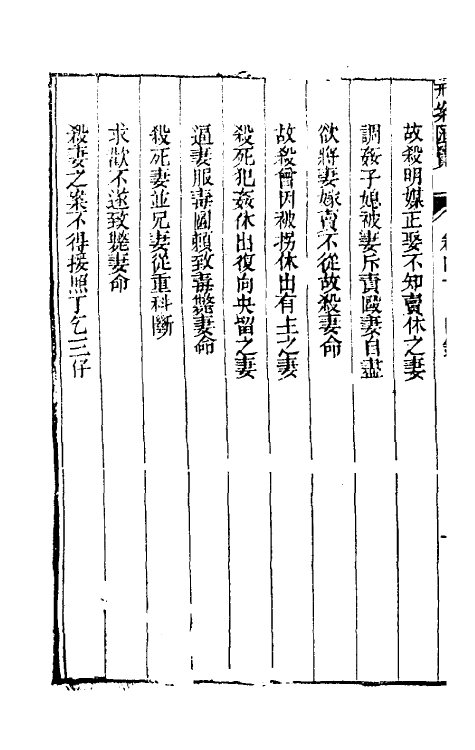 刑案匯覽
卷四十 目錄
故殺明媒正娶不知賣休之妻
調姦子媳被妻斥責毆妻自盡
欲將妻嫁賣不從故殺妻命
故殺曾因被拐休出有主之妻
殺死犯姦休出復向央留之妻
逼妻服毒圖賴致毒斃妻命
殺死妻並兄妻從重科斷
求歡不遂致斃妻命
殺妻之案不得援照丁乞三仔